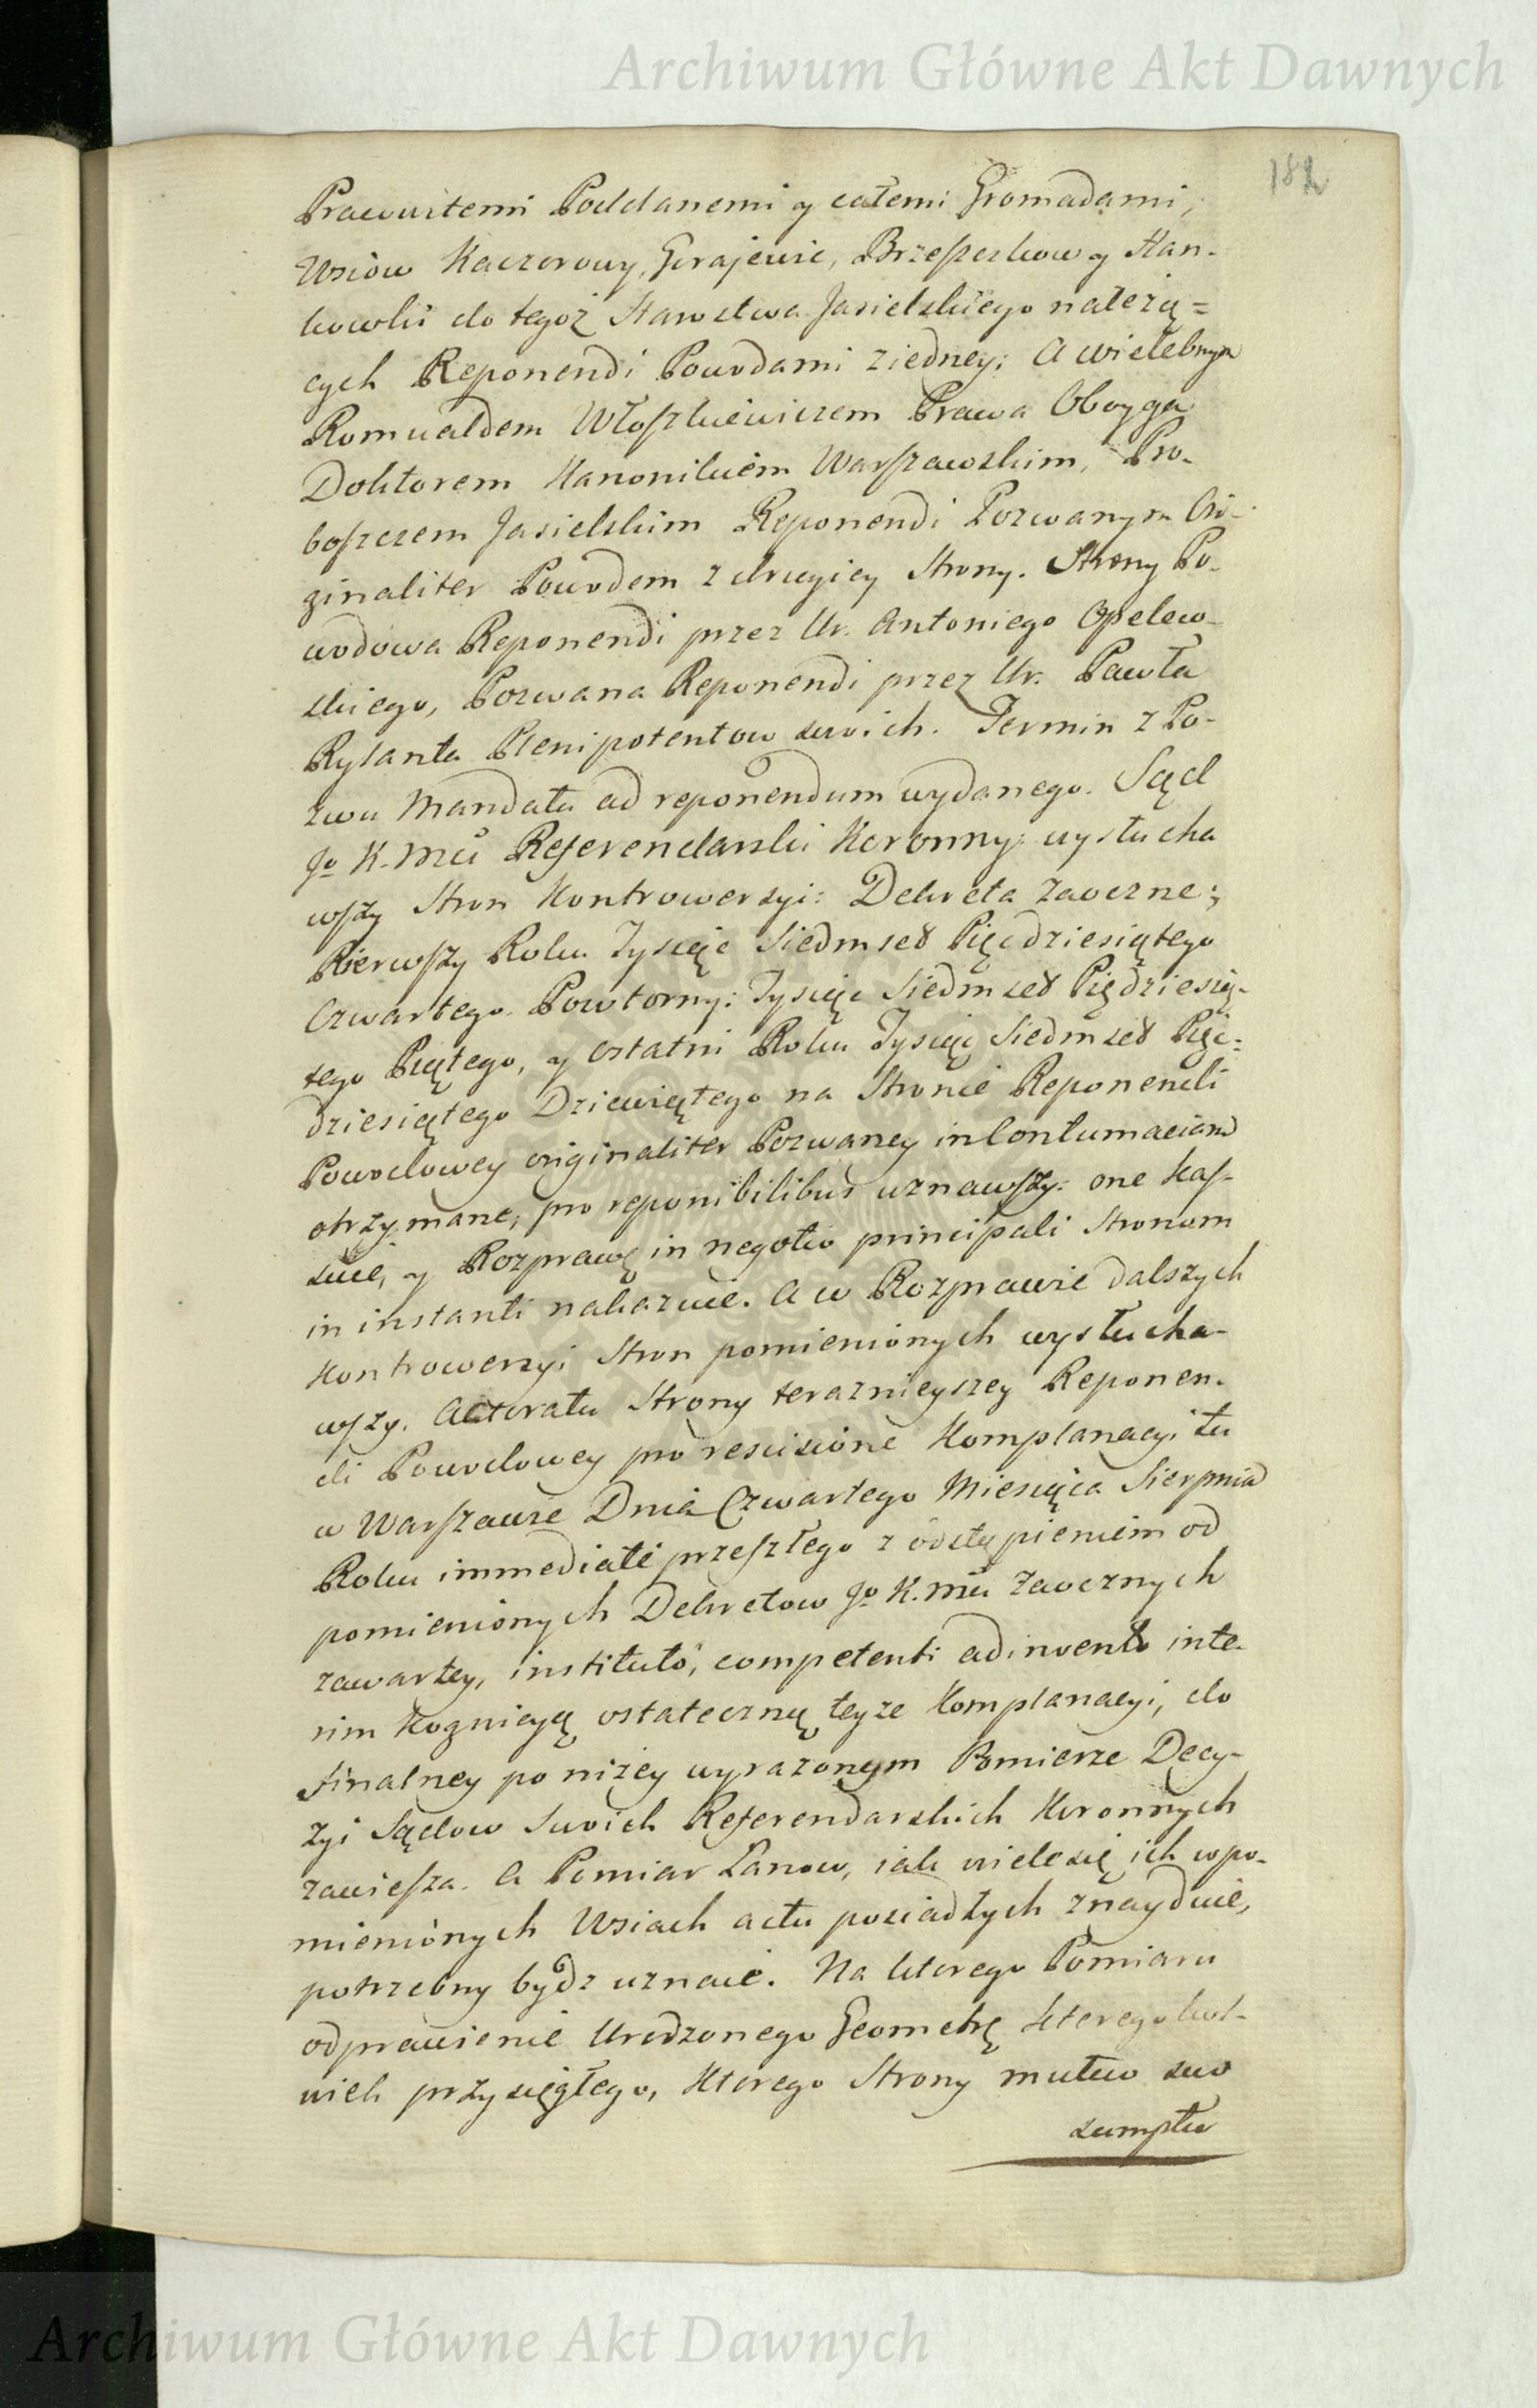 Archiwum Główne Akt Dawnych
182
Pracowitemi Poddanemi y całemi Gromadami,
Wsiow Kaczorowy, Gorajewic, Brzeszczkow y Han-
kowki do tegoż Starostwa Jasielskiego należą=
cych Reponendi Powodami z iedney; A wielebnym
Romualdem Włoszkiewiczem Prawa Oboyga
Doktorem Kanonikiem Warszawskim, Pro-
boszczem Jasielskim Reponendi Pozwanym Ori-
ginaliter Powodem z drugiey Strony. Strony Po-
wodowa Reponendi przez Ur. Antoniego Opelew-
skiego, Pozwana Reponendi przez Ur. Pawła
Rylanta Plenipotentow swoich. Termin z Po-
zwu Mandatu ad reponendum wydanego. Sąd
Jo K. Mci Referendarski Koronny: wysłucha
wszy Stron Kontrowersyi: Dekreta zaoczne;
Pierwszy Roku Tysiąc Siedmset Pięcdziesiątego
Czwartego. Powtorny: Tysiąc Siedmset Pięcdziesią-
tego Piątego, y Ostatni Roku Tysiąc Siedmset Pięc=
dziesiątego Dziewiątego na Stronie Reponendi
Powodowey originaliter Pozwaney in Contumaciam
otrzymane, pro reponibilibus uznawszy: one Kas-
suie, y Rozprawę in negotio principali Stronom
in instanti nakazuie. A w Rozprawie dalszych
Kontrowersyi Stron pomienionych wysłucha-
wszy. Actoratu Strony terazniejszey Reponen-
di Powodowey pro rescisione Komplanacyi tu
w Warszawie Dnia Czwartego Miesiąca Sierpnia
Roku immediate przeszłego z odstąpieniem od
pomienionych Dekretow Jo K. Mci zaocznych
zawartey, instituto, competenti adinvento inte-
rim Kognicyą ostateczną teyże Komplanacyi, do
finalney po niżey wyrażonym Pomierze Decy-
zyi Sądow Swoich Referendarskich Koronnych
zawiesza. A Pomiar Łanow, iak wiele się ich w po-
mienionych Wsiach actu posiadłych znayduie,
potrzebny bydz uznaie. Na ktorego Pomiaru
odprawienie Urodzonego Geometrę ktoregokol-
wiek przysięgłego, ktorego Strony mutuo suo
sumptu
Archiwum Główne Akt Dawnych